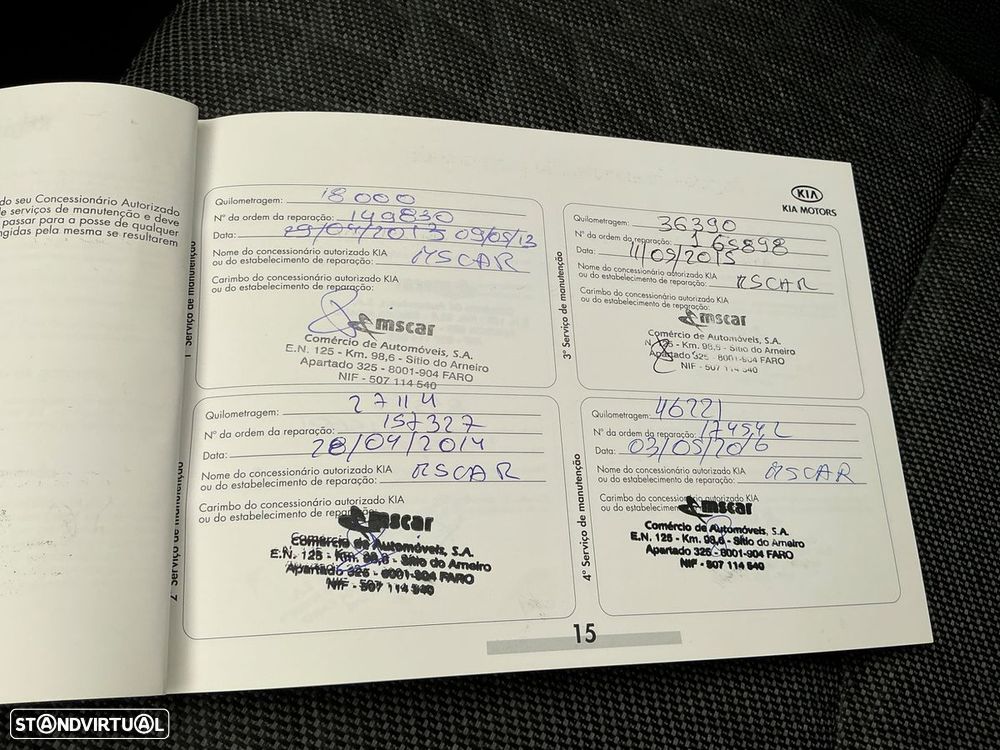 do seu Concessionário Autorizado
e serviços de manutenção e deve
passar para a posse de qualquer
ngidas pela mesma se resultarem
KIA
KIA MOTORS
1º Serviço de manutenção
Quilometragem: 18000
Nº da ordem da reparação: 149830
Data: 29/04/2013 09/05/13
Nome do concessionário autorizado KIA
ou do estabelecimento de reparação: MSCAR
Carimbo do concessionário autorizado KIA
ou do estabelecimento de reparação:
mscar
Comércio de Automóveis, S.A.
E.N. 125 - Km. 98,6 - Sítio do Arneiro
Apartado 325 - 8001-904 FARO
NIF - 507 114 540
2º Serviço de manutenção
Quilometragem: 27114
Nº da ordem da reparação: 157327
Data: 28/04/2014
Nome do concessionário autorizado KIA
ou do estabelecimento de reparação: MSCAR
Carimbo do concessionário autorizado KIA
ou do estabelecimento de reparação:
mscar
Comércio de Automóveis, S.A.
E.N. 125 - Km. 98,6 - Sítio do Arneiro
Apartado 325 - 8001-904 FARO
NIF - 507 114 540
3º Serviço de manutenção
Quilometragem: 36390
Nº da ordem da reparação: 165898
Data: 11/05/2015
Nome do concessionário autorizado KIA
ou do estabelecimento de reparação: MSCAR
Carimbo do concessionário autorizado KIA
ou do estabelecimento de reparação:
mscar
Comércio de Automóveis, S.A.
N. 125 - Km. 98,6 - Sítio do Arneiro
Apartado 325 - 8001-904 FARO
NIF - 507 114 540
4º Serviço de manutenção
Quilometragem: 46221
Nº da ordem da reparação: 174542
Data: 03/05/2016
Nome do concessionário autorizado KIA
ou do estabelecimento de reparação: MSCAR
Carimbo do concessionário autorizado KIA
ou do estabelecimento de reparação:
mscar
Comércio de Automóveis, S.A.
E.N. 125 - Km. 98,6 - Sítio do Arneiro
Apartado 325 - 8001-904 FARO
NIF - 507 114 540
15
STANDVIRTUAL